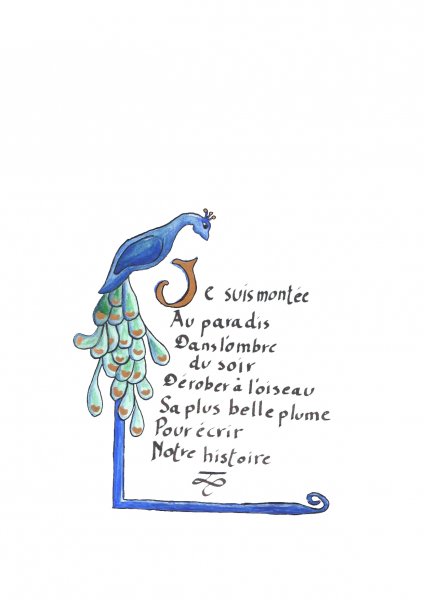 Je suis montée
Au paradis
Dans l'ombre
du soir
Dérober à l'oiseau
Sa plus belle plume
Pour écrir
Notre histoire